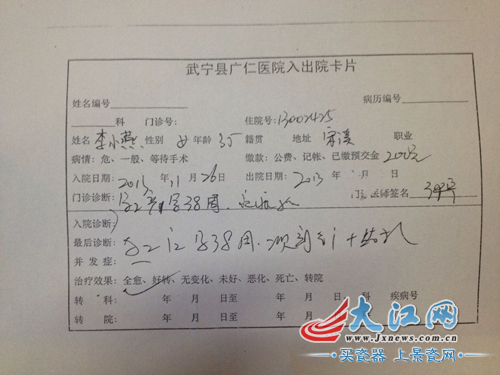 武宁县广仁医院入出院卡片
姓名编号 病历编号
科 门诊号: 住院号: 13002425
姓名 李小燕 性别 女 年龄 35 籍贯 地址 宋溪 职业
病情: 危、一般、等待手术 缴款: 公费、记帐、已缴预交金 200元
入院日期: 2013 年 11 月 26 日 出院日期: 2013 年 月 日
门诊诊断: 孕2产1孕38周 医师签名
入院诊断:
最后诊断: 孕38周
并发症:
治疗效果: 全愈、好转、无变化、未好、恶化、死亡、转院
转科: 年 月 日至 年 月 日 科 疾病号
转院: 年 月 日至 年 月 日
大江网
www.jxnews.com.cn
买瓷器 上景瓷网